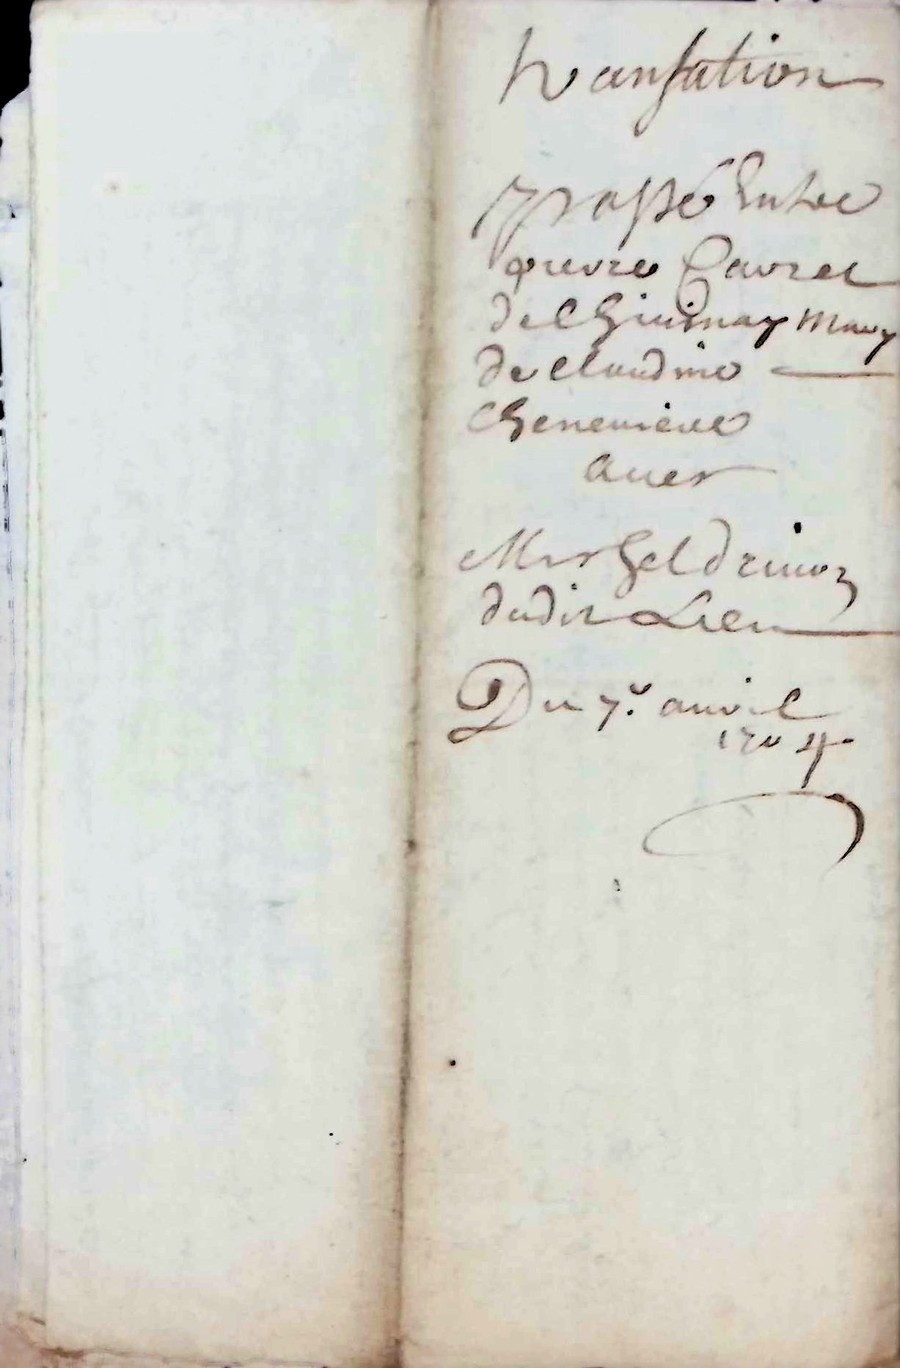 transation
passé Entre
pierre Cauret
de Chuinay Mary
de Claudine
Genevieve
Avec
Mr Geldrinoz
dudit Lieu
Du 7e avril
1704